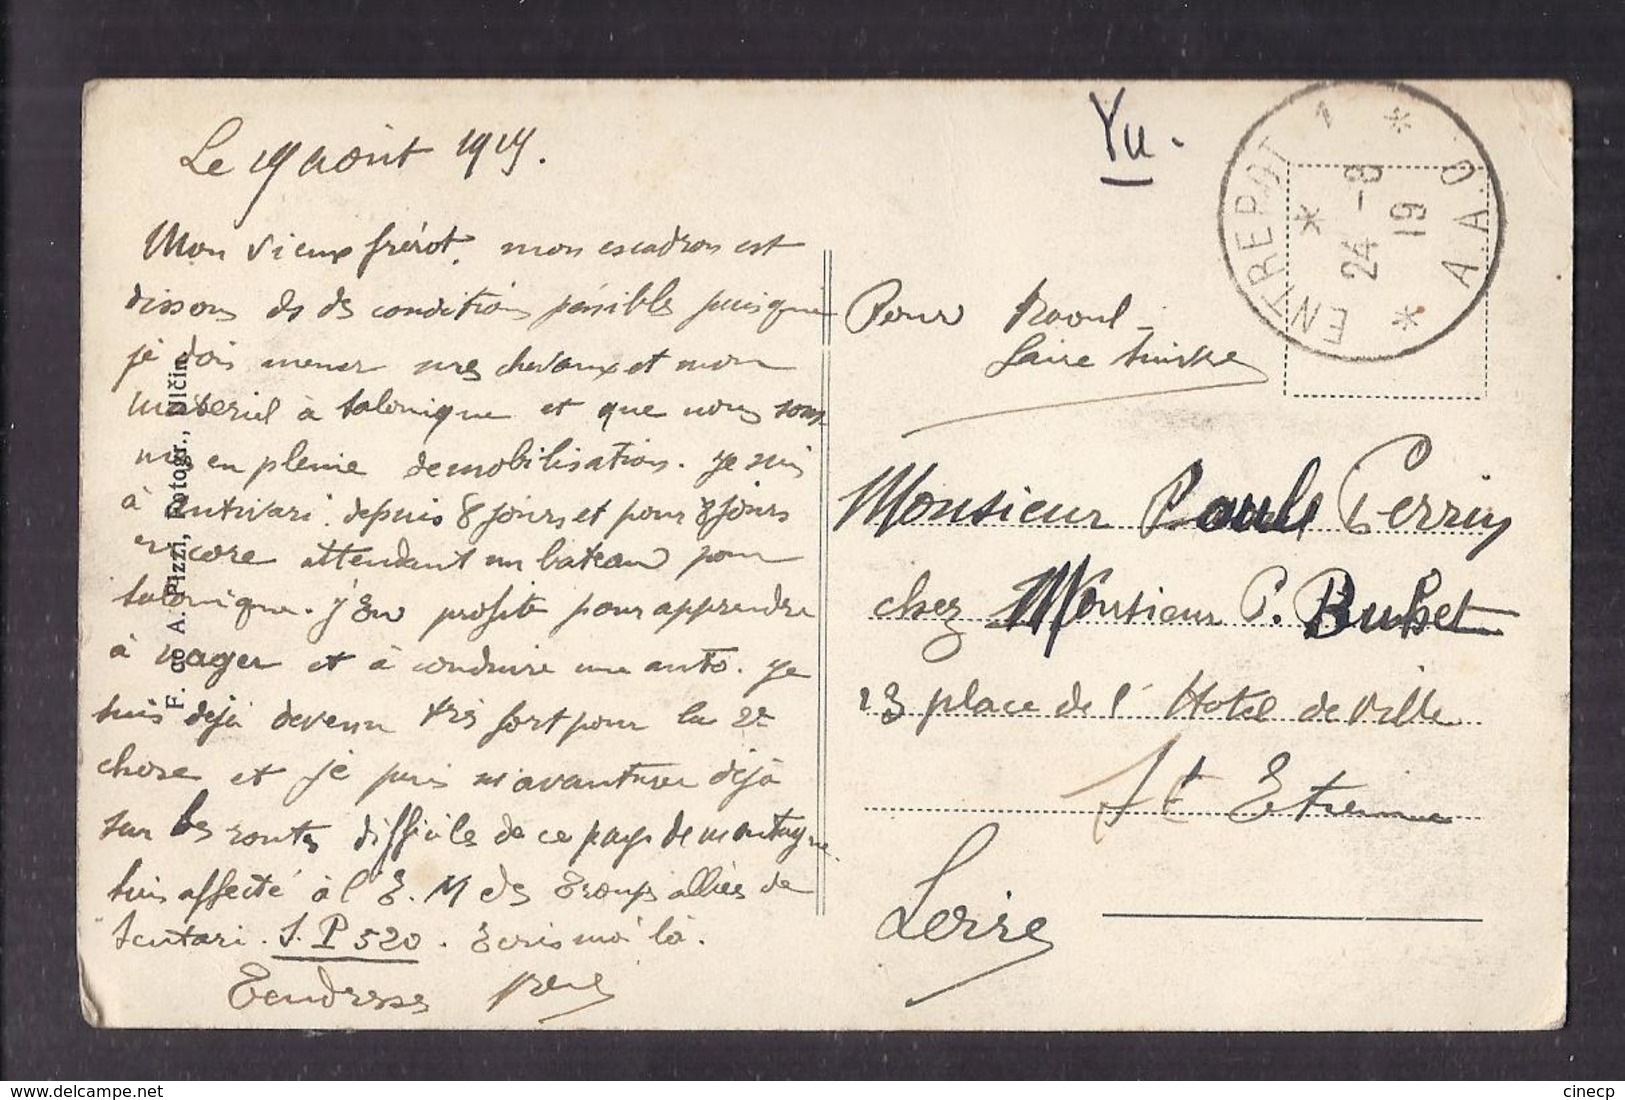 Le 19 août 1919.
Mon vieux frérot, mon escadron est
dissous ds des conditions pénibles puisque
je dois mener mes chevaux et mon
materiel à Salonique et que nous som
mes en pleine demobilisation. Je suis
à Antivari depuis 8 jours et pour 8 jours
encore attendant un bateau pour
Salonique. J'en profite pour apprendre
à nager et à conduire une auto. Je
suis déjà devenu très fort pour la 2e
chose et je puis m'avanturer déjà
sur les routes difficiles de ce pays de montagne.
Suis affecté à l'E. M des Troupes alliées de
Scutari. S. P 520. Ecris moi là.
Tendresses René
F. co A. Pizzi, Fotogr., Ulčin
Vu.
ENTREPOT 1 * A.A.O *
* 24 -8 19
Pour Raoul
faire suivre
Monsieur Paul Perrin
chez Monsieur P. Buhet
23 place de l'Hotel de Ville
St Etienne
Loire
cinecp